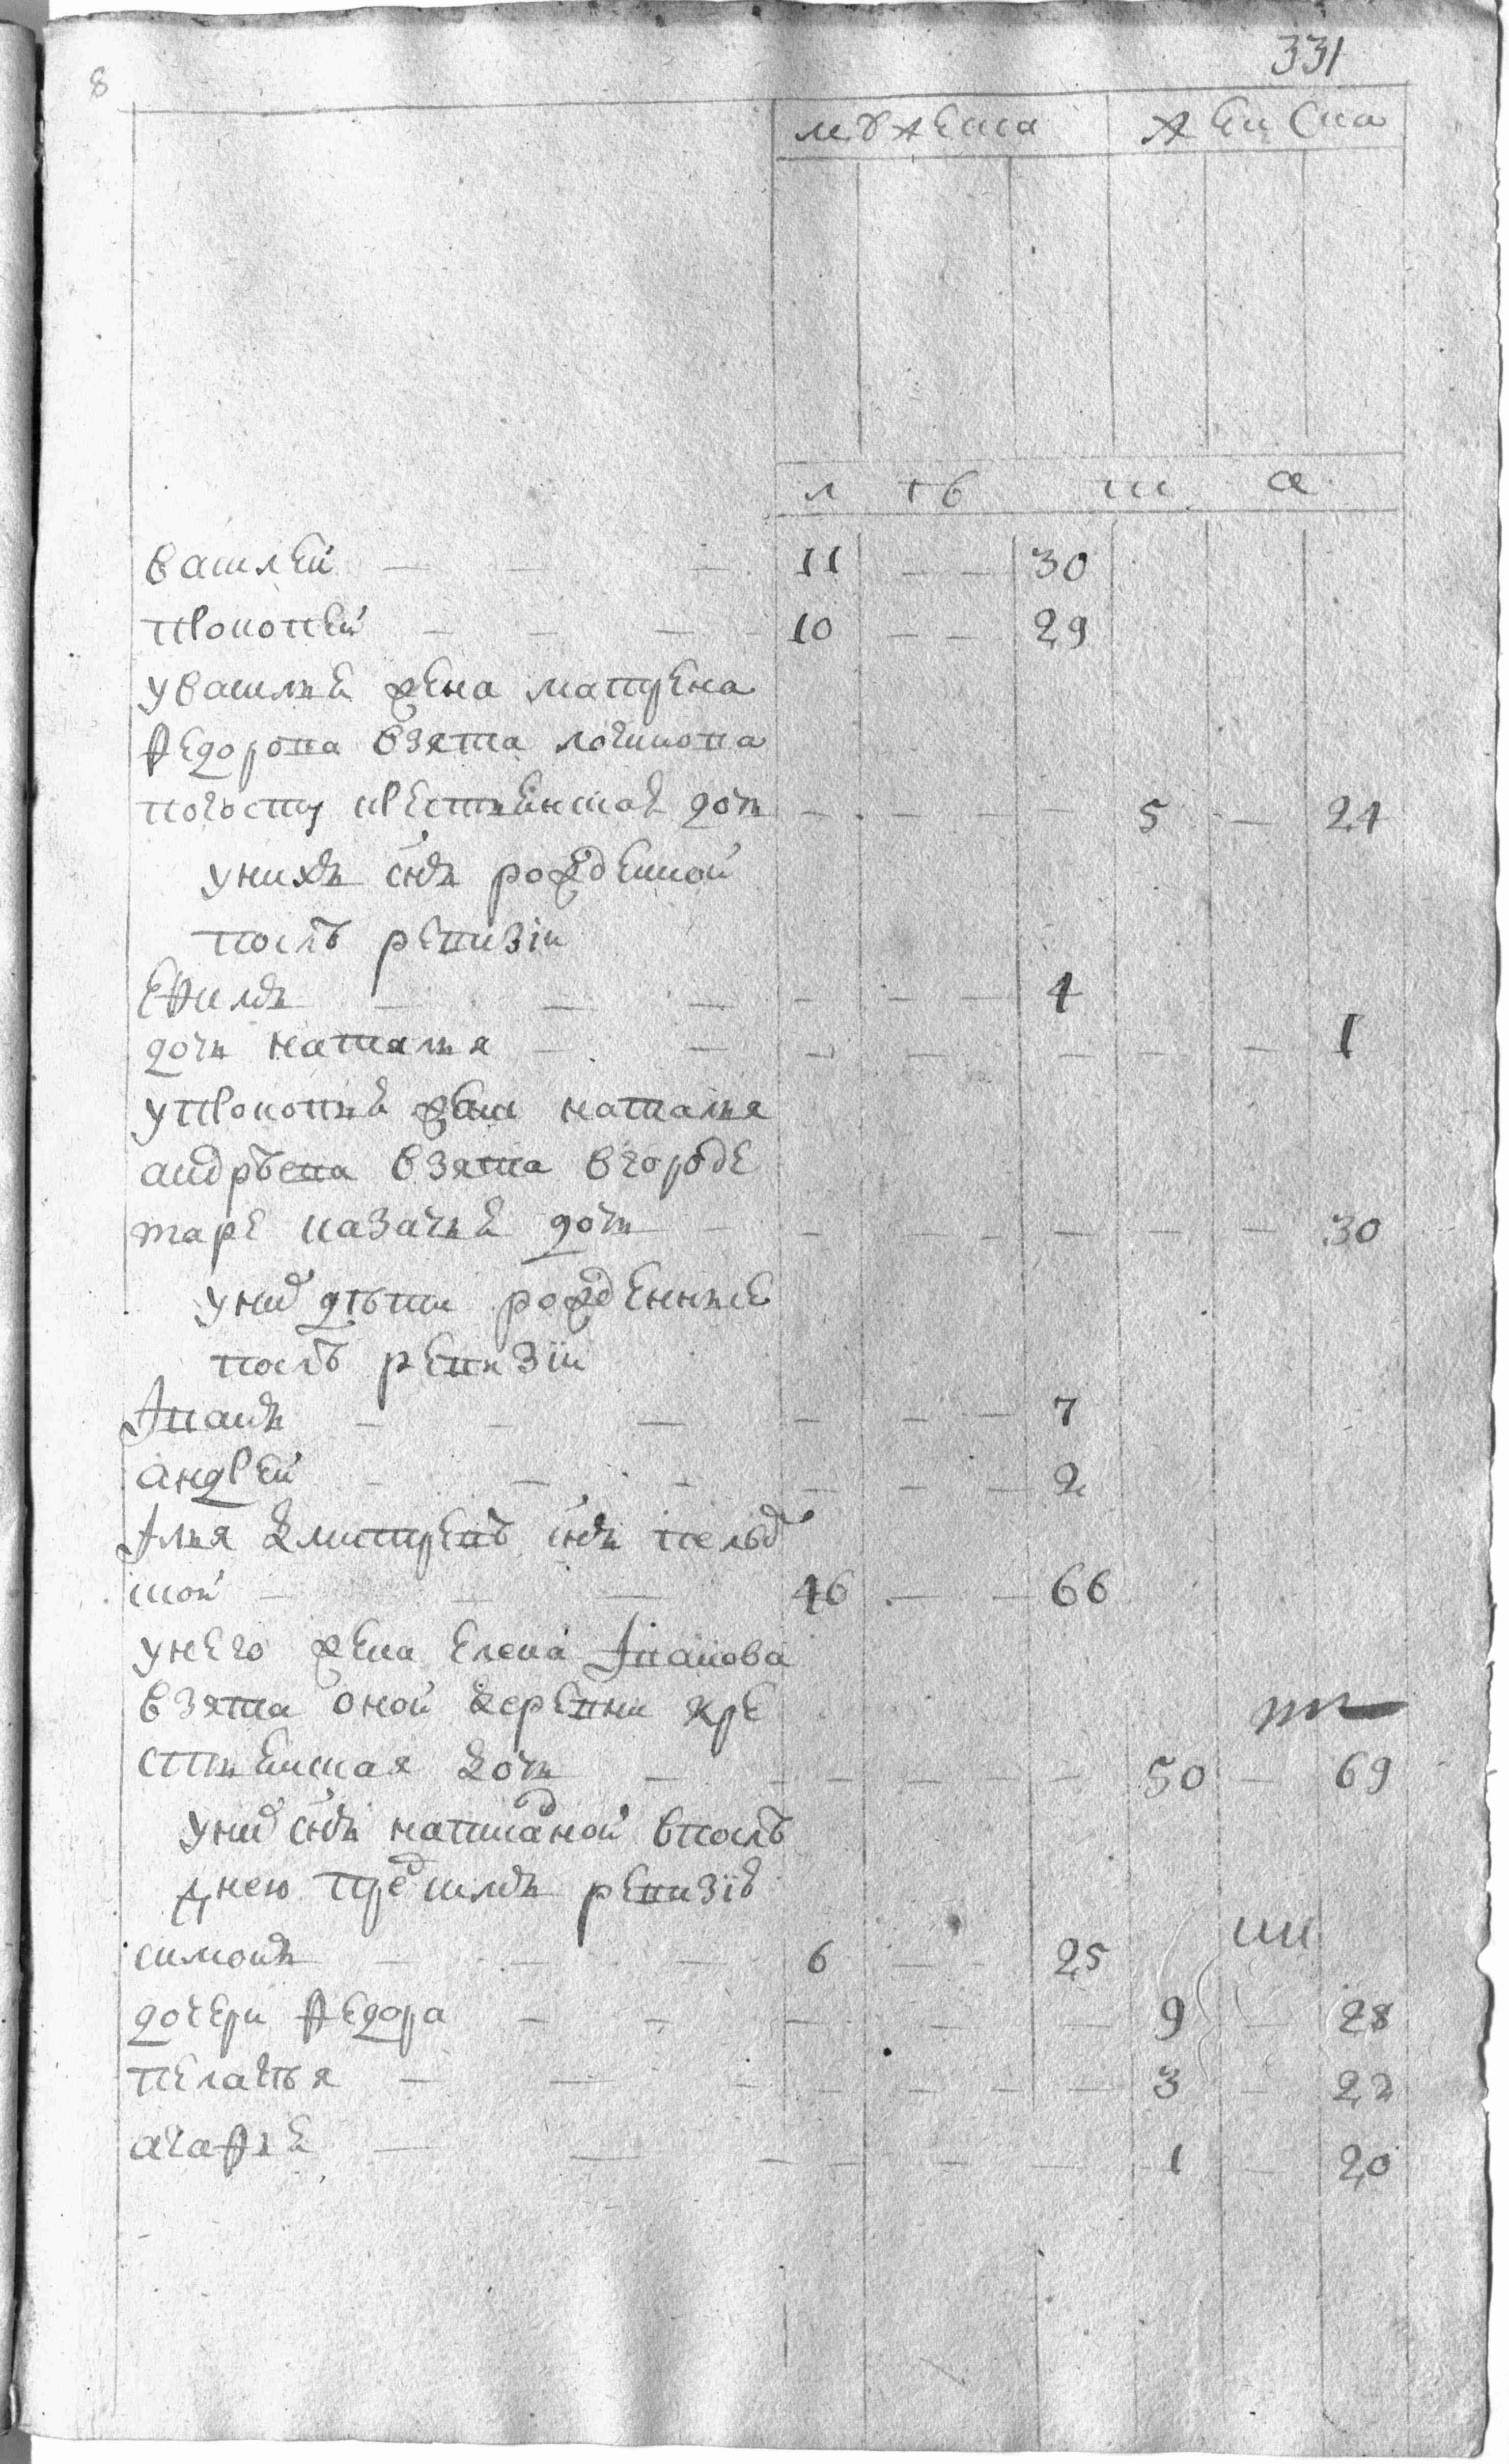 8
331
мужеска женска
л ѣ т а
василей 11 30
прокопей 10 29
у василья жена матрена
федорова взята логинова
погосту крестьянская дочь 5 24
у нихъ снъ рожденной
послѣ ревизiи
ефимъ 4
дочь наталья 1
у прокопья жена наталья
андрѣева взята в городе
таре казачья дочь 30
у них дѣти рожденные
послѣ ревизiи
Iванъ 7
андрей 2
Iлья дмитревъ снъ
шой 46 66
у него жена елена Iванова
взята оной деревни кре
стьянская дочь 50 69
у них снъ написаной в послѣ
днею пред симъ ревизiю
симонъ 6 25
дочери федора 9 28
пелагѣя 3 22
агафья 1 20